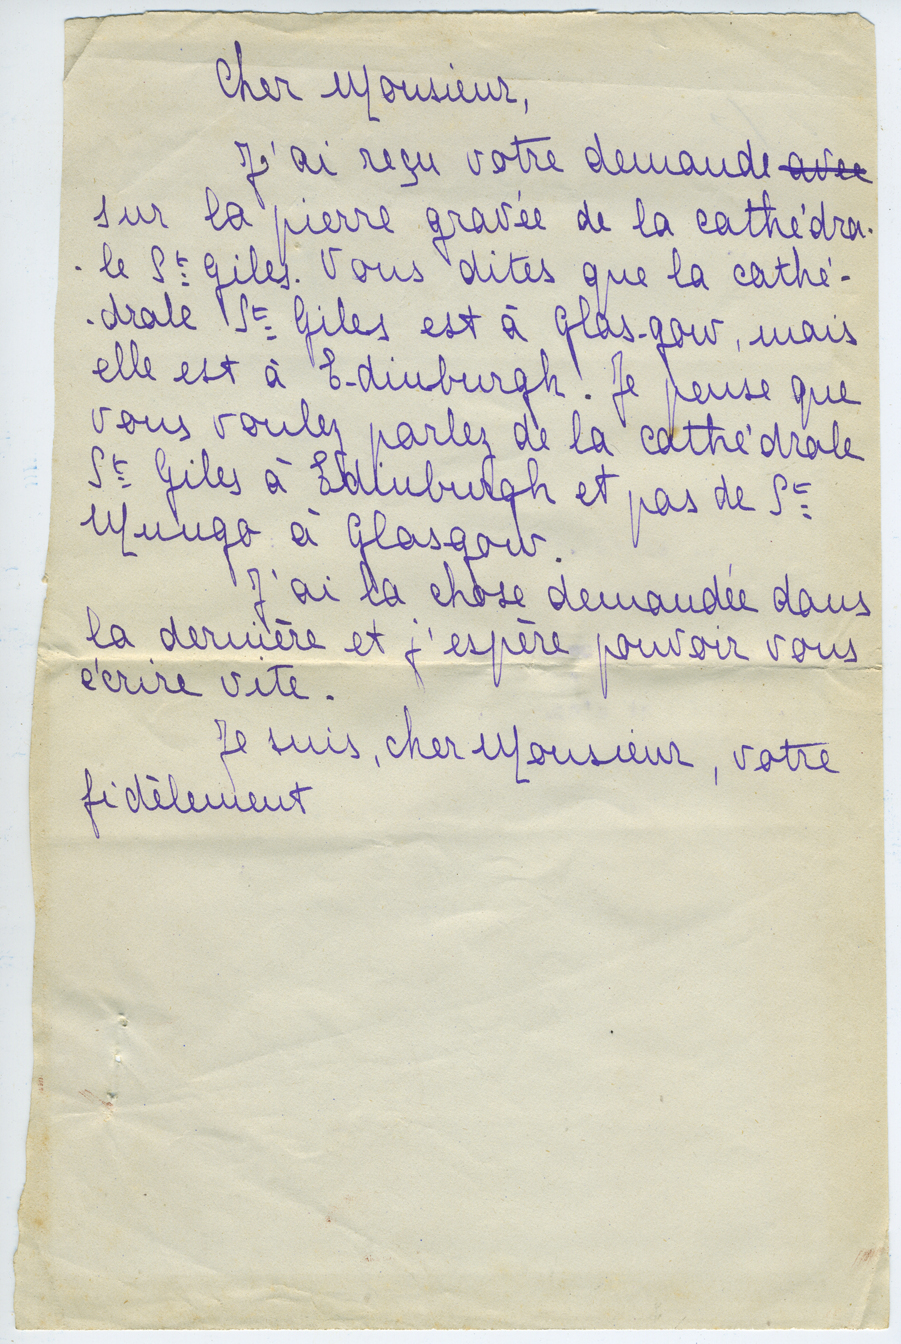 Cher Monsieur,
J'ai reçu votre demande avec
sur la pierre gravée de la cathédra-
-le St Giles. Vous dites que la cathé-
-drale St Giles est à Glas-gow, mais
elle est à E-dinburgh. Je pense que
vous voulez parlez de la cathédrale
St Giles à Edinburgh et pas de St
Mungo à Glasgow.
J'ai la chose demandée dans
la dernière et j'espère pouvoir vous
écrire vite.
Je suis, cher Monsieur, votre
fidèlement